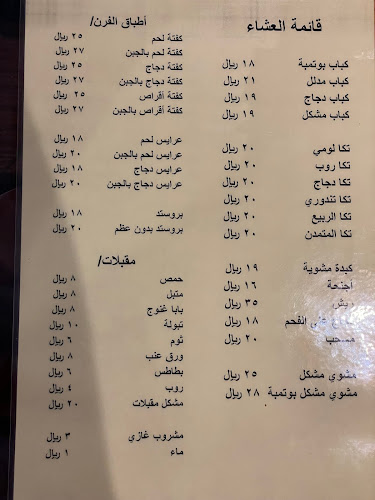 قائمة العشاء
كباب بوتمبة ١٨ ريال
كباب مدلل ٢١ ريال
كباب دجاج ١٩ ريال
كباب مشكل ١٩ ريال
تكا لومي ٢٠ ريال
تكا روب ٢٠ ريال
تكا دجاج ٢٠ ريال
تكا تندوري ٢٠ ريال
تكا الربيع ٢٠ ريال
تكا المتمدن ٢٠ ريال
كبدة مشوية ١٩ ريال
أجنحة ١٦ ريال
ريش ٣٥ ريال
على الفحم ١٨ ريال
٢٠ ريال
مشوي مشكل ٢٥ ريال
مشوي مشكل بوتمبة ٢٨ ريال
أطباق الفرن/
كفتة لحم ٢٥ ريال
كفتة لحم بالجبن ٢٧ ريال
كفتة دجاج ٢٥ ريال
كفتة دجاج بالجبن ٢٧ ريال
كفتة أقراص ٢٥ ريال
كفتة أقراص بالجبن ٢٧ ريال
عرايس لحم ١٨ ريال
عرايس لحم بالجبن ٢٠ ريال
عرايس دجاج ١٨ ريال
عرايس دجاج بالجبن ٢٠ ريال
بروستد ١٨ ريال
بروستد بدون عظم ٢٠ ريال
مقبلات/
حمص ٨ ريال
متبل ٨ ريال
بابا غنوج ٨ ريال
تبولة ١٠ ريال
ثوم ٦ ريال
ورق عنب ٨ ريال
بطاطس ٦ ريال
روب ٤ ريال
مشكل مقبلات ٢٠ ريال
مشروب غازي ٣ ريال
ماء ١ ريال